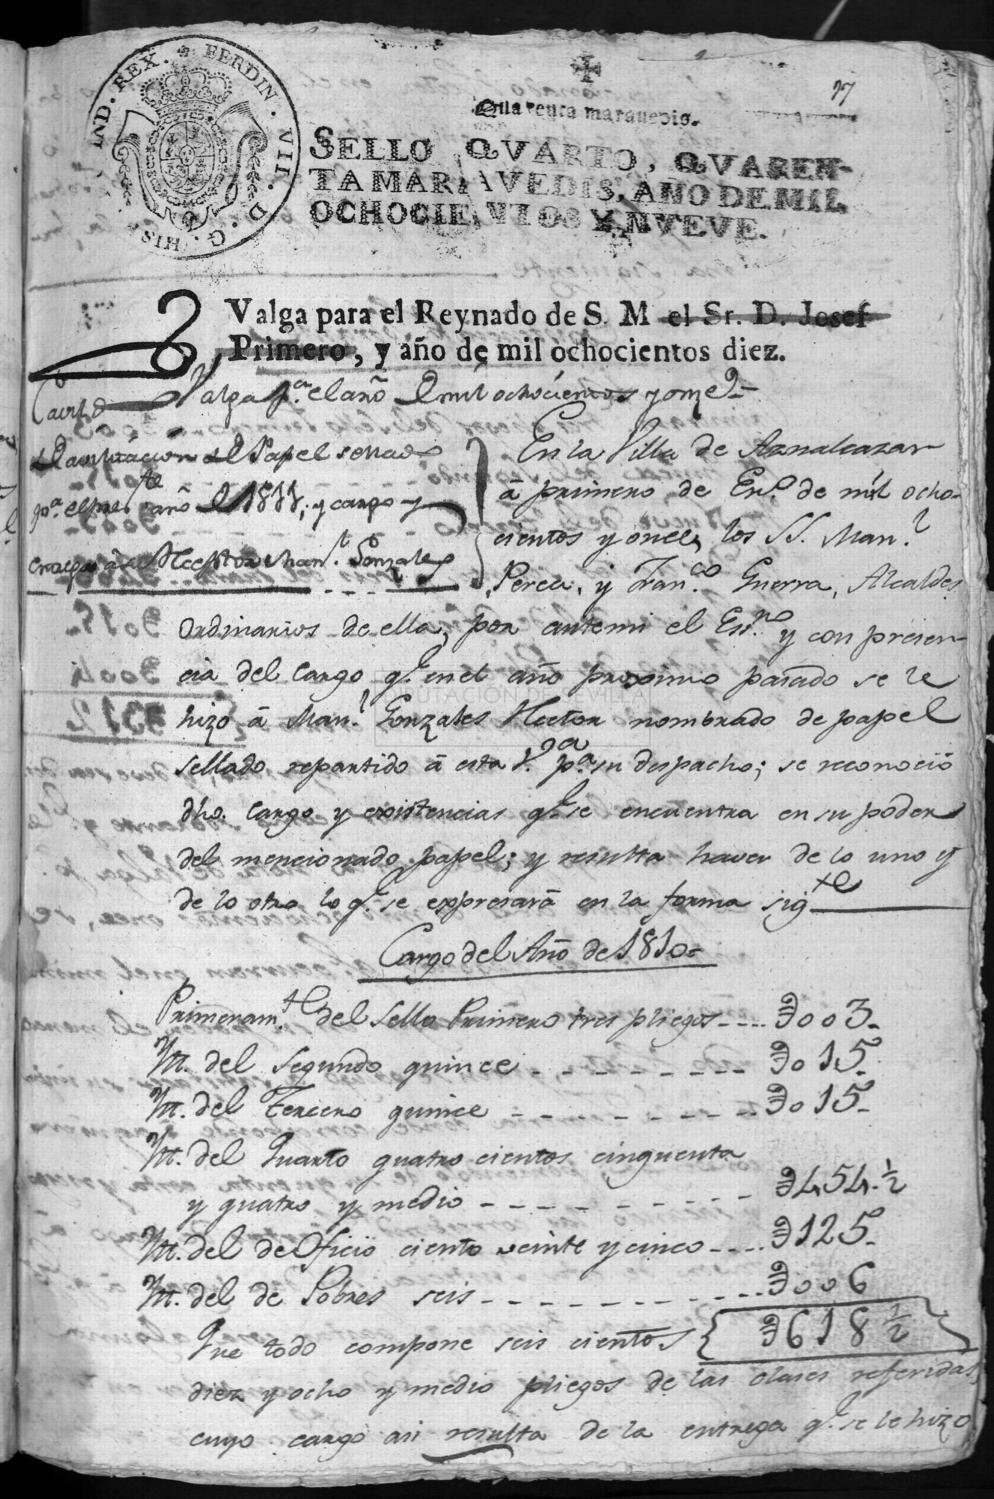 HISP. ET IND. REX. FERDIN. VII. D. G.
27
Quarenta maravedis.
SELLO QVARTO, QVAREN-
TA MARAVEDIS, AÑO DE MIL
OCHOCIENTOS Y NVEVE.
Valga para el Reynado de S. M el Sr. D. Josef
Primero, y año de mil ochocientos diez.
Valga pª. el año de mil ochocientos y onze
del Papel sellado
año de 1811, y cargo
Man.l Gonzales
En la Villa de Aznalcazar
á primero de En.º de mil ocho-
cientos y once, los SS. Man.l
Perea, y Fran.co Guerra, Alcaldes
Ordinarios de ella, por ante mi el Es.no y con presen-
cia del Cargo q.e en el año proximo pasado se le
hizo á Man.l Gonzales Rector nombrado de papel
sellado repartido á esta V.ª p.ª su despacho; se reconoció
dho. cargo y existencias q.e se encuentra en su poder
del mencionado papel; y resulta haver de lo uno y
de lo otro lo q.e se expresará en la forma sig.te
Cargo del Año de 1810=
Primeram.te del Sello Primero tres pliegos ---- 003-
Yt. del Segundo quince - - - - - - - - 015-
Yt. del Tercero quince - - - - - - - - 015-
Yt. del Quarto quatrocientos cinquenta
y quatro y medio - - - - - - - - 454-½
Yt. del de Oficio ciento veinte y cinco ---- 125-
Yt. del de Pobres seis - - - - - - - - 006
Que todo compone seis cientos 618½
diez y ocho y medio pliegos de las clases referidas
cuyo cargo asi resulta de la entrega q.e se le hizo